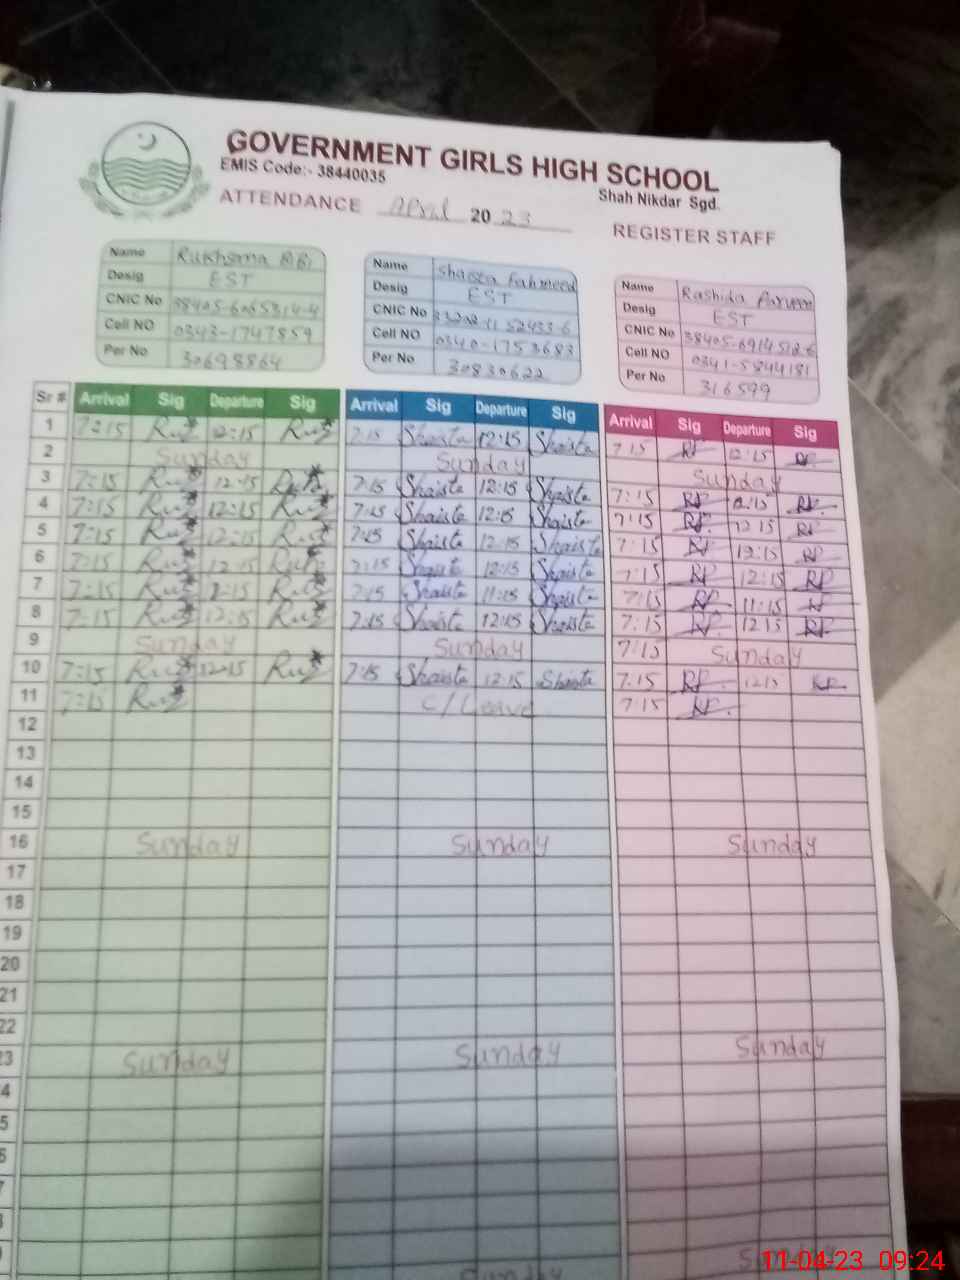 GOVERNMENT GIRLS HIGH SCHOOL
EMIS Code:- 38440035
Shah Nikdar Sgd.
ATTENDANCE April 2023
REGISTER STAFF
Name Rukhsana BiBi
Desig EST
CNIC No
Cell NO 0343-1747859
Per No 30698864
Name Shaista Fahmeed
Desig EST
CNIC No
Cell NO 0340-1753683
Per No 30830622
Name Rashida Parveen
Desig EST
CNIC No
Cell NO 0341-5844181
Per No 316599
Sr # Arrival Sig Departure Sig Arrival Sig Departure Sig Arrival Sig Departure Sig
1 7:15 12:15 7:15 Shaista 12:15 Shaista 7:15 RP 12:15 RP
2 Sunday Sunday Sunday
3 7:15 12:15 7:15 Shaista 12:15 Shaista 7:15 RP 12:15 RP
4 7:15 12:15 7:15 Shaista 12:15 Shaista 7:15 RP 12:15 RP
5 7:15 12:15 7:15 Shaista 12:15 Shaista 7:15 RP 12:15 RP
6 7:15 12:15 7:15 Shaista 12:15 Shaista 7:15 RP 12:15 RP
7 7:15 7:15 Shaista 11:15 Shaista 7:15 RP 11:15 RP
8 7:15 12:15 7:15 Shaista 12:15 Shaista 7:15 RP 12:15 RP
9 Sunday Sunday 7:15 Sunday
10 7:15 12:15 7:15 Shaista 12:15 Shaista 7:15 RP 12:15 RP
11 7:15 C/Leave 7:15 RP
12
13
14
15
16 Sunday Sunday Sunday
17
18
19
20
21
22
3 Sunday Sunday Sunday
4
5
Sunday Sunday
11-04-23 09:24